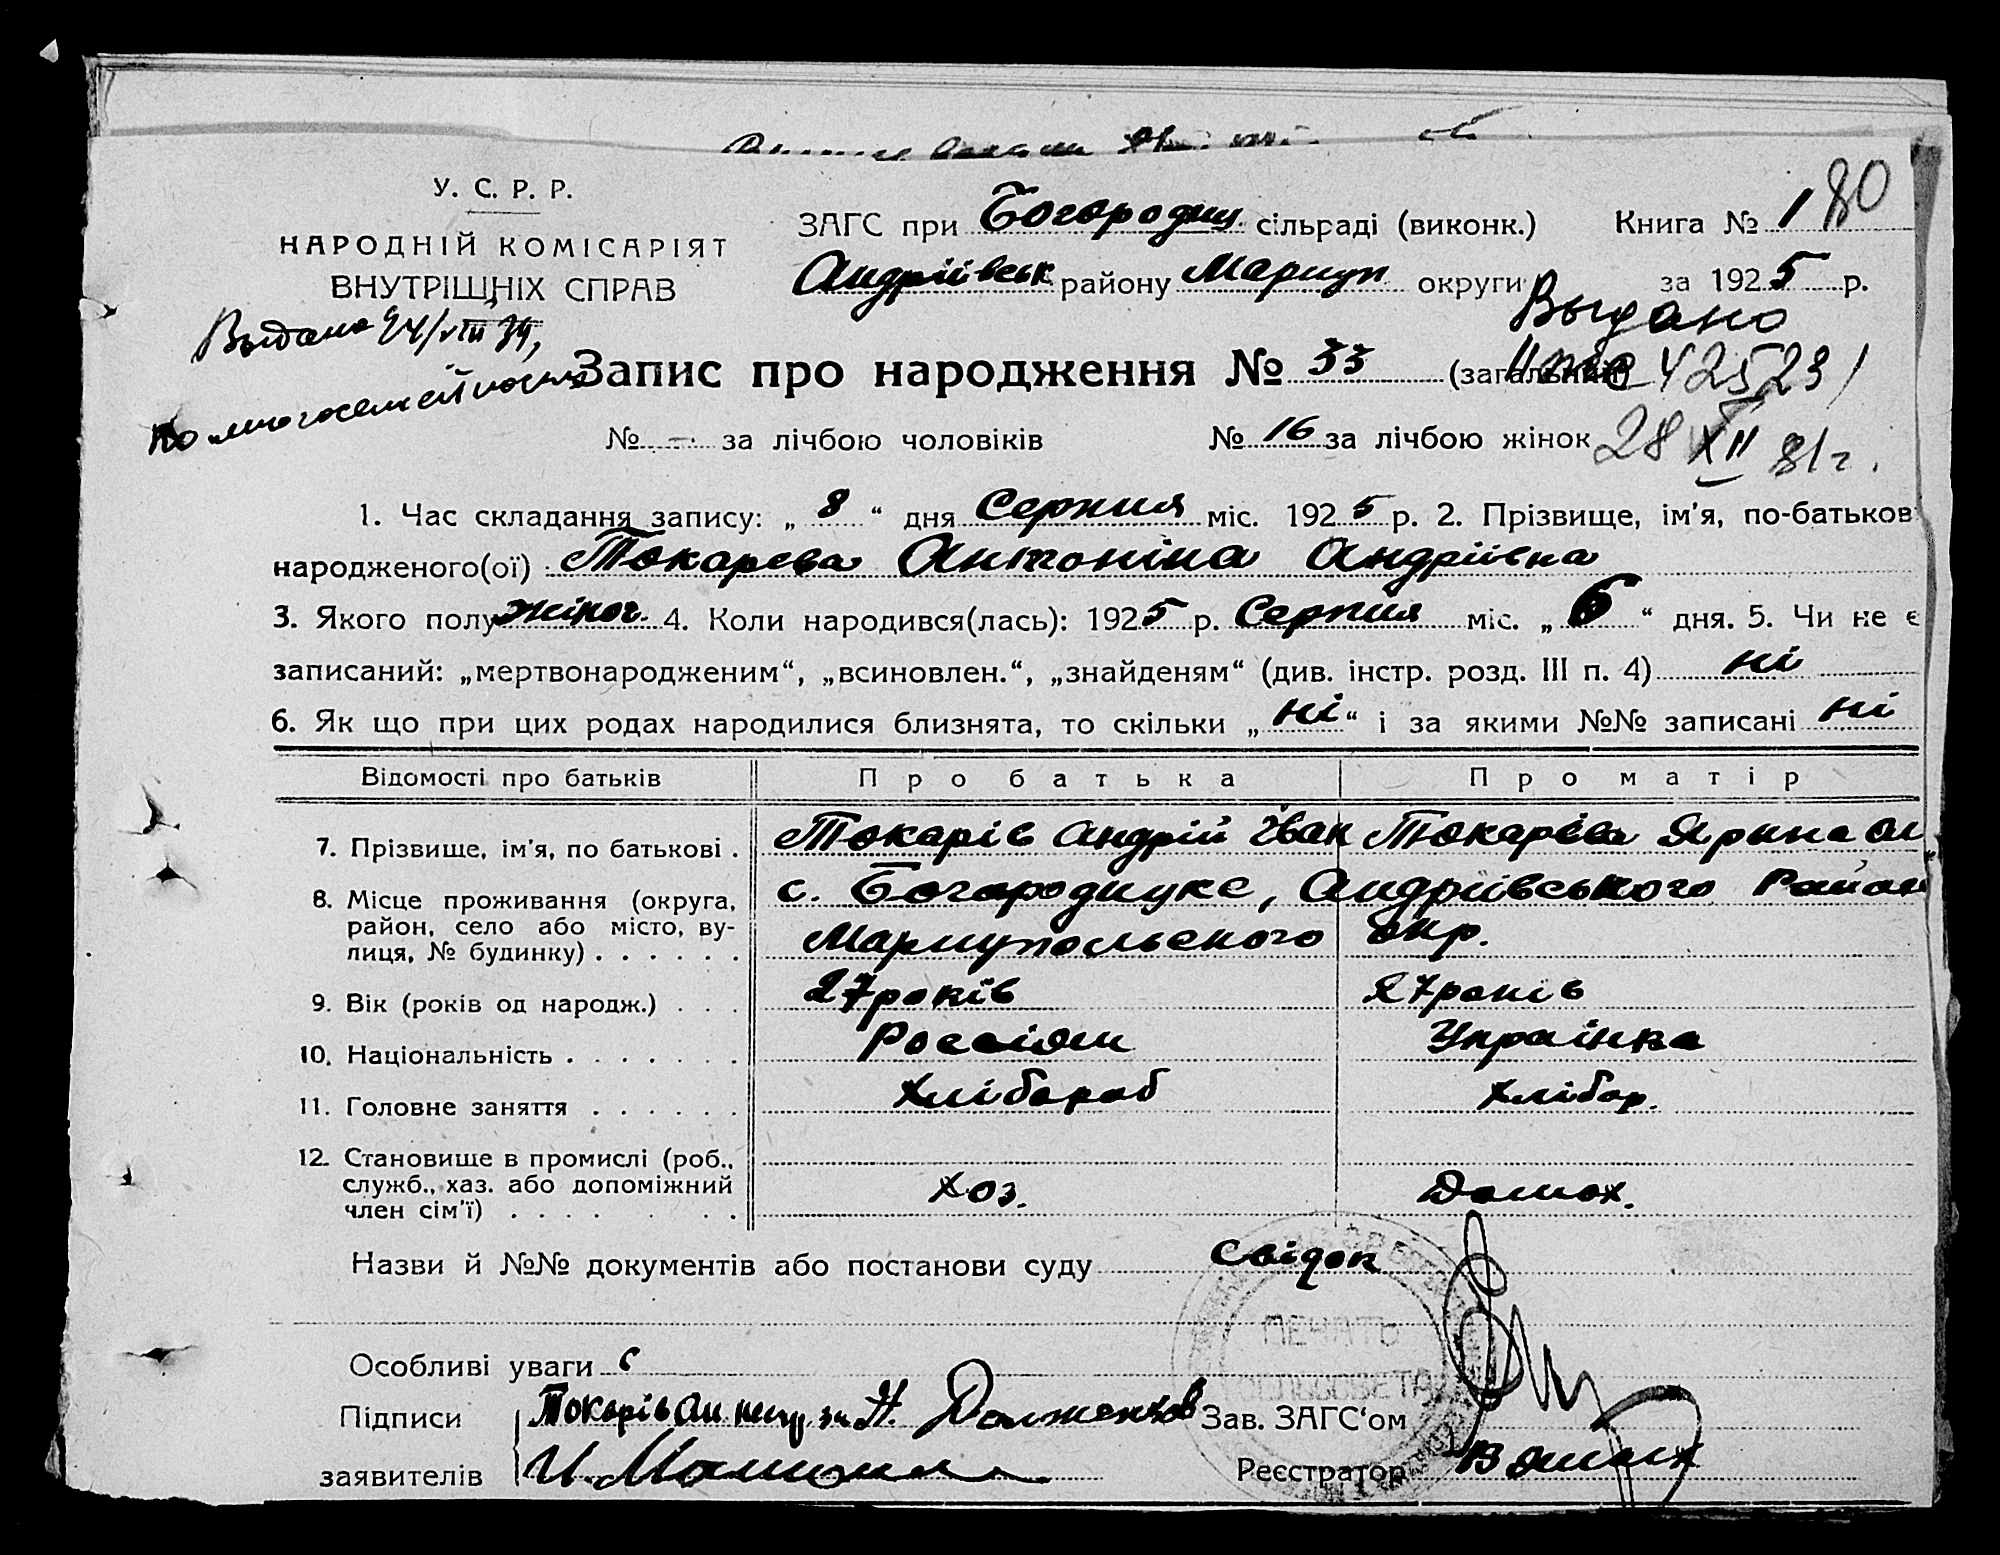 У. С. Р. Р.
НАРОДНІЙ КОМІСАРІЯТ
ВНУТРІШНІХ СПРАВ
ЗАГС при Богородиц. сільраді (виконк.) Книга № 1 80
Андріївськ району Мариуп округи за 1925 р.
Выдано 24/VIII
по многосемейности
Выдано
425231
28 XII 81 г.
Запис про народження № 33 (загальний)
№ - за лічбою чоловіків № 16 за лічбою жінок
1. Час складання запису: „ 8 “ дня Серпня міс. 1925 р. 2. Прізвище, ім'я, по-батькові
народженого(ої) Токарева Антоніна Андріївна
3. Якого полу жіноч. 4. Коли народився(лась): 1925 р. Серпня міс. „ 6 “ дня. 5. Чи не є
записаний: „мертвонародженим“, „всиновлен.“, „знайденям“ (див. інстр. розд. III п. 4) ні
6. Як що при цих родах народилися близнята, то скільки „ ні “ і за якими №№ записані ні
Відомості про батьків Про батька Про матір
7. Прізвище, ім'я, по батькові . Токарів Андрій Іван Токарева Ярина
8. Місце проживання (округа, район, село або місто, вулиця, № будинку) . . . . . . с. Богородицке, Андріївського Район
Мариупольского окр.
9. Вік (років од народж.) . . . 27 років 27 років
10. Національність . . . . . . . Россіян Украінка
11. Головне заняття . . . . . . Хлібороб Хлібор.
12. Становище в промислі (роб., служб., хаз. або допоміжний член сім'ї) . . . . . . . Хоз. Домох.
Назви й №№ документів або постанови суду Свідок
Особливі уваги
Підписи Токарів Ан за Н. Долженков Зав. ЗАГС'ом
заявителів И. Реєстратор
ПЕЧАТЬ
СЕЛЬСОВЕТА